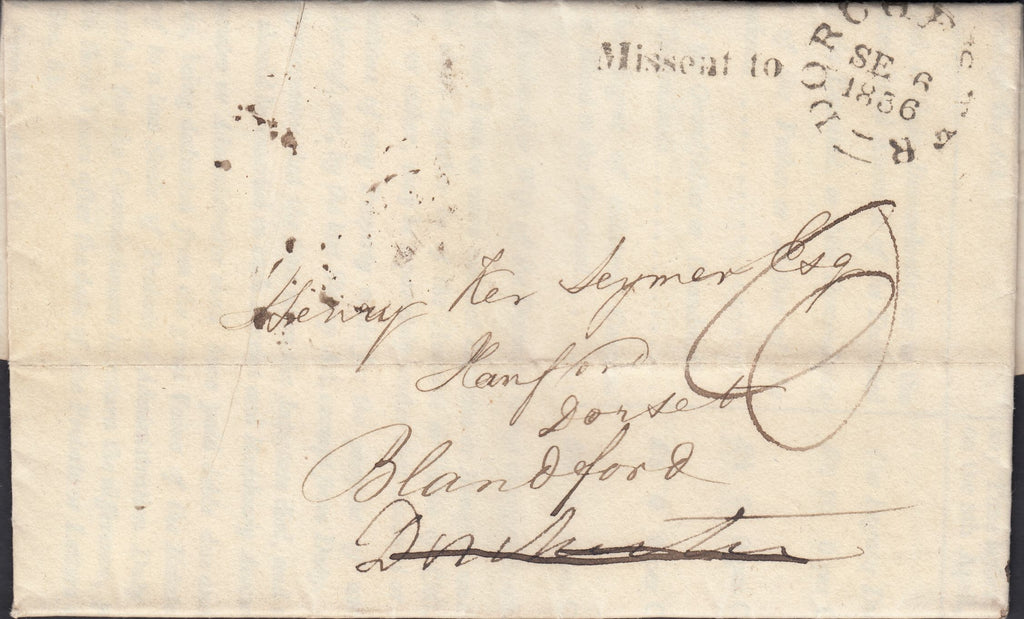 Missent to
DORCHESTER
SE 6
1836
Henry Ker Seymer Esq
Hanford
Dorset
Blandford
Dorchester